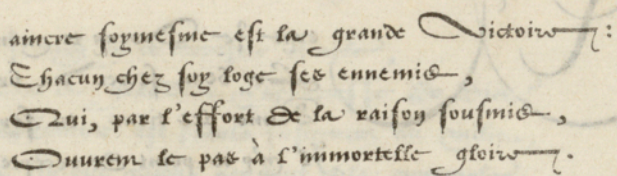 aincre soymesme est la grande Victoire :
Chacun chez soy loge ses ennemis,
Qui, par l'effort de la raison sousmis,
Ouurent le pas à l'immortelle gloire.